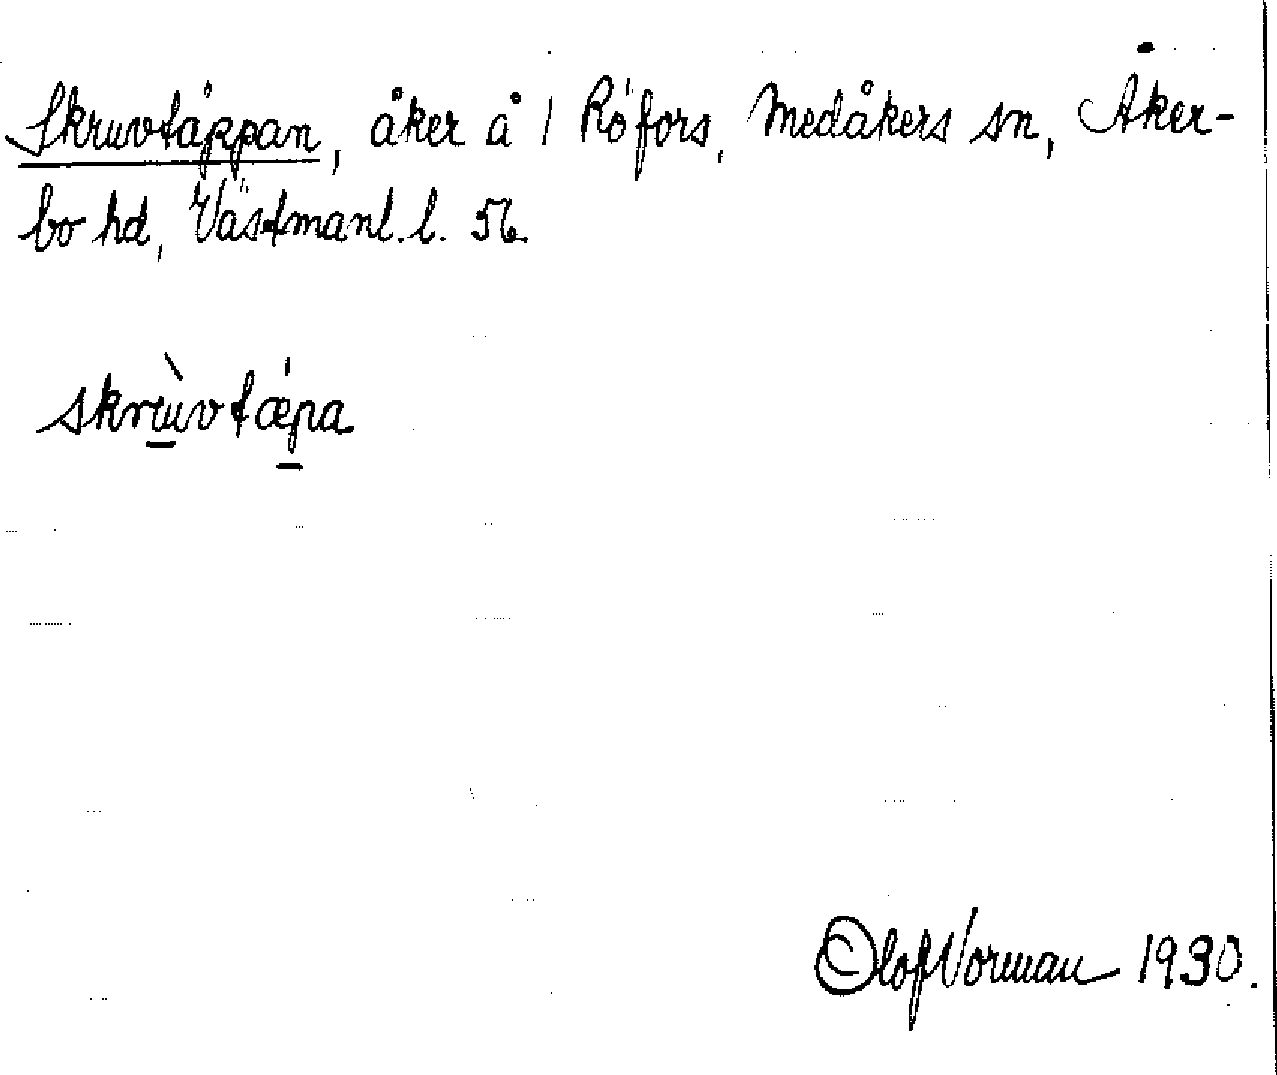 Skruvtäppan, åker å 1 Röfors, Medåkers sn, Åker-
bo hd, Västmanl. l. 56.
skrùvtæpa
Olof Norman 1930.